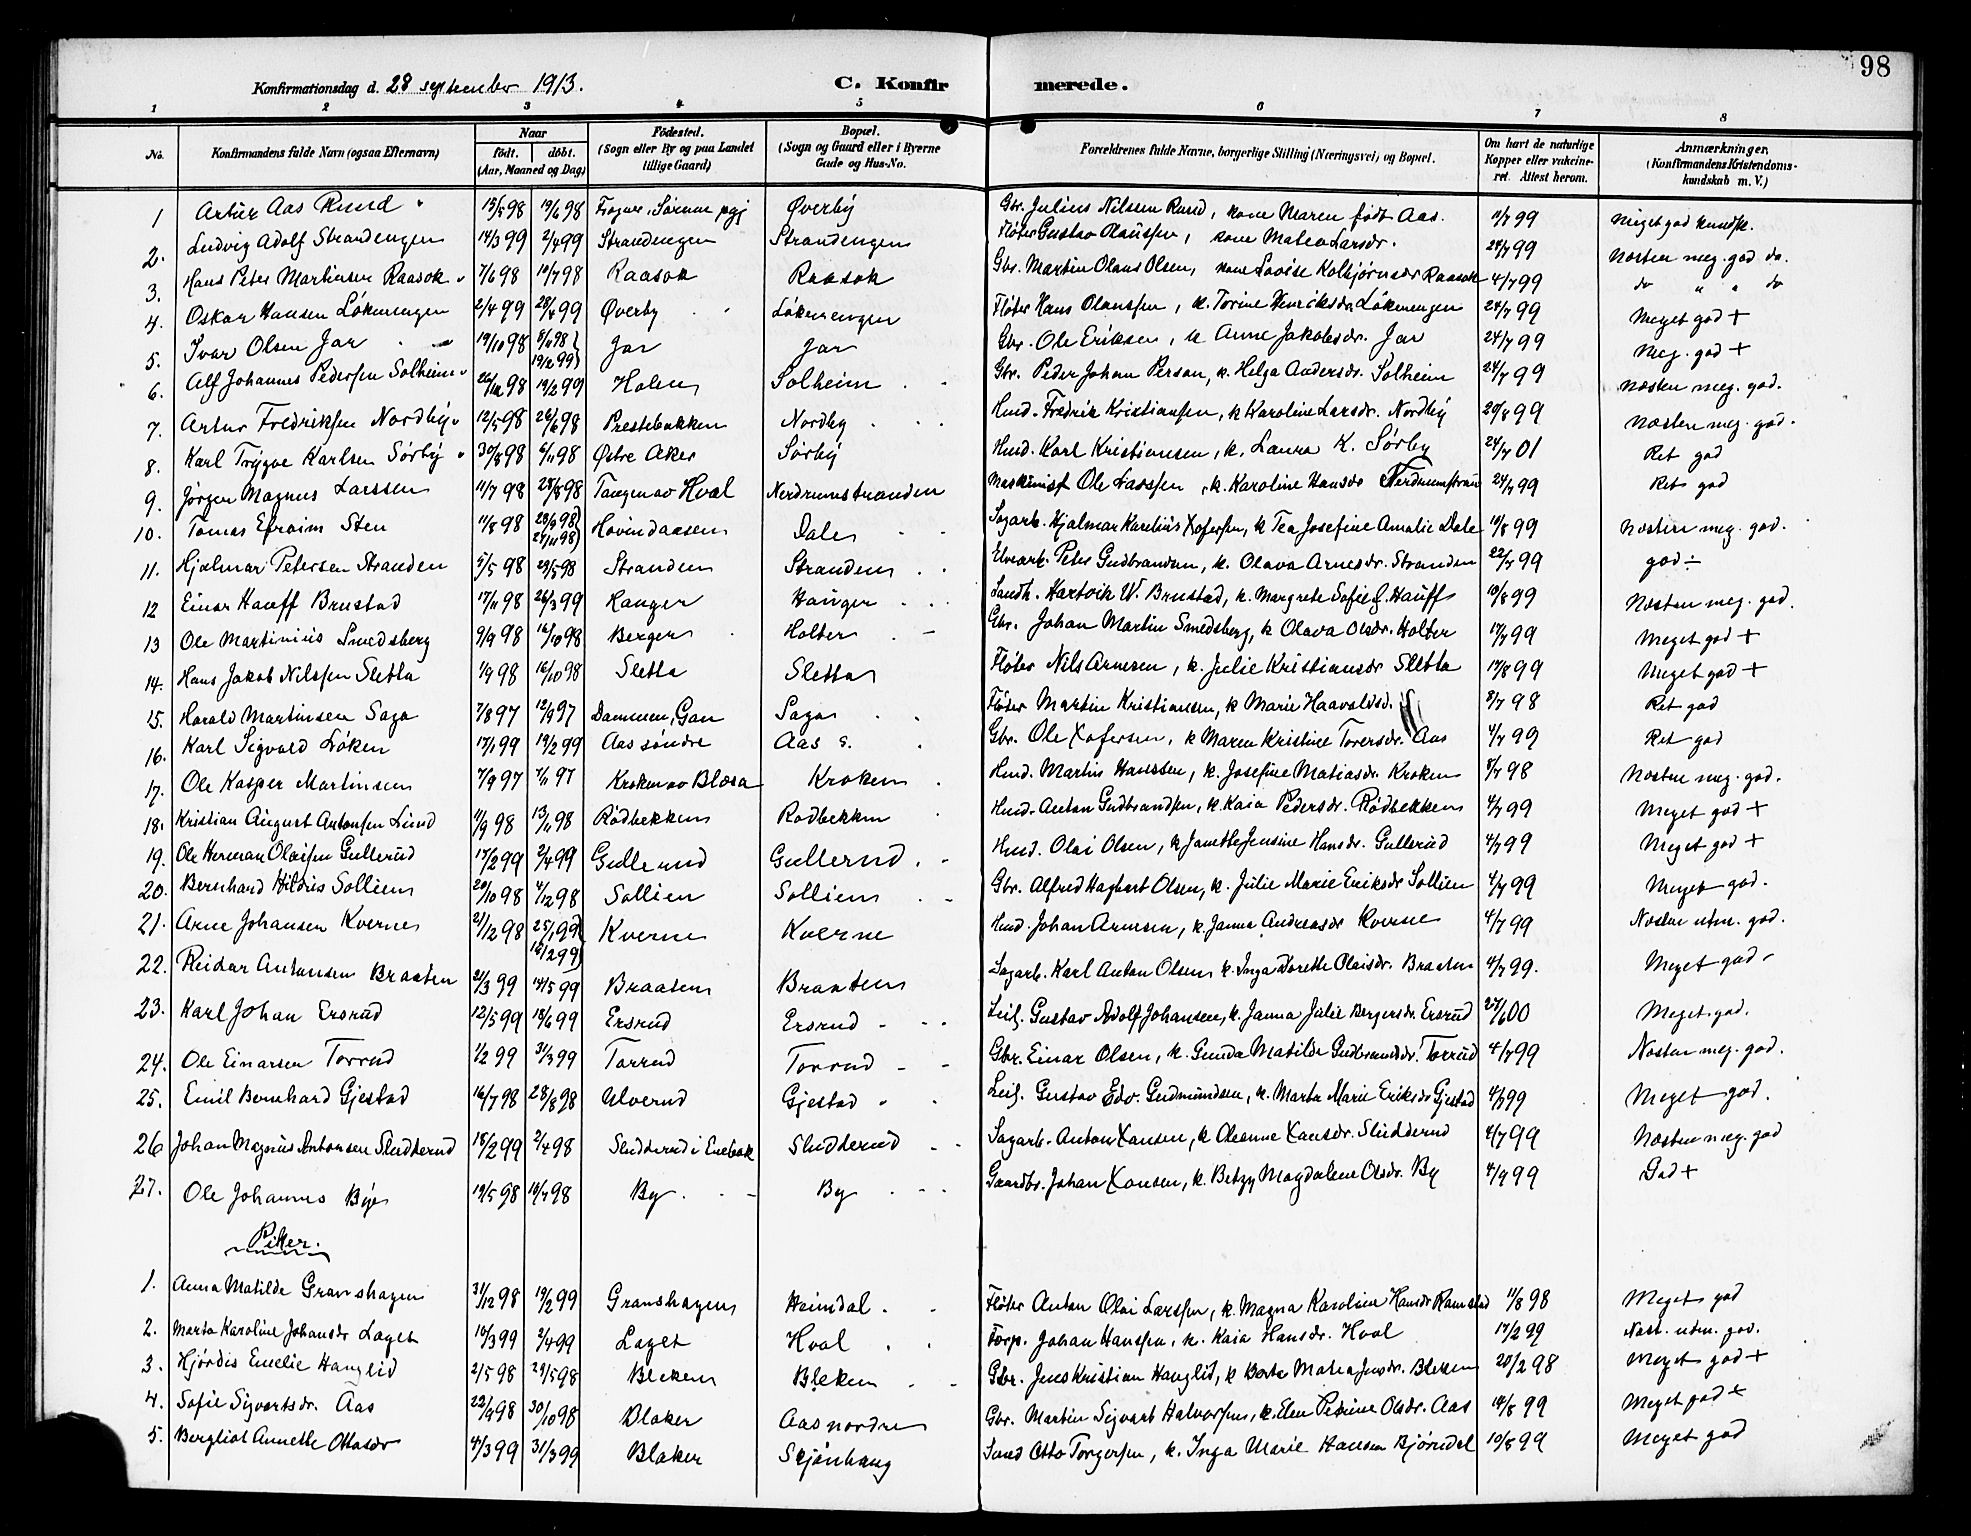 98
Konfirmationsdag d. 28 september 1913. C. Konfirmerede.
1 2 3 4 5 6 7 8
No. Konfirmandens fulde Navn (ogsaa Efternavn) Naar født. døbt. (Aar, Maaned og Dag) Fødested. (Sogn eller By og paa Landet tillige Gaard) Bopæl. (Sogn og Gaard eller i Byerne Gade og Hus-No. Forældrenes fulde Navne, borgerlige Stilling (Næringsvei) og Bopæl. Om havt de naturlige Kopper eller vakcineret. Attest herom. Anmærkninger, (Konfirmandens Kristendomskundskab m. V.)
1 Artur Aas Rund 13/5 98 19/6 98 Sørum pgj Øverby Gbr. Julius Nilssen Rund, kone Maren født Aas. 11/7 99 Meget god kundsk.
2. Ludvig Adolf Strandengen 14/3 99 2/4 99 Strandengen Strandengen Fløter Gustav Olaussen, kone Matea Larsdr. 24/7 99 Næsten meg. god do.
3. Hans Peter Martinsen Raasok 7/6 98 10/7 98 Raasok Raasok Gbr. Martin Olaus Olsen, kone Lovise Kolbjørnsdr Raasok 4/7 99 do " " do
4. Oskar Hansen Løkenengen 2/4 99 28/4 99 Øverby Løkenengen Fløter Hans Olaussen, k. Torine Henriksdr. Løkenengen 24/7 99 Meget god +
5. Ivar Olsen Jar 19/10 98 6/11 98 19/2 99 Jar Jar Gbr. Ole Eriksen, k Anne Jakobsdr. Jar 24/7 99 Meg. god +
6. Alf Johannes Pedersen Solheim 26/12 98 19/2 99 Holen Solheim Gbr. Peder Johan Person, k. Helga Andersdr. Solheim 24/7 99 Næsten meg. god.
7. Artur Fredriksen Nordby 12/5 98 26/6 98 Prestebakken Nordby Husd. Fredrik Kristiansen, k Karoline Larsdr. Nordby 29/8 99 Næsten meg. god.
8. Karl Trygve Karlsen Sørby 30/8 98 6/11 98 Østre Aker Sørby Husd. Karl Kristiansen, k. Laura K. Sørby 24/7 01 Ret god
9. Jørgen Magnus Larssen 11/7 98 28/8 98 Tangen av Hval Nerdrumstranden Maskinist Ole Larssen, k. Karoline Hansdr Nerdrumstran 24/7 99 Ret god
10. Tomas Efraim Sten 11/8 98 28/8 98 27/11 98 Hovindaasen Dalen Sagarb. Hjalmar Karelius Xofersen, k Tea Josefine Amalie Dale 10/8 99 Næsten meg. god.
11. Hjalmar Petersen Stranden 5/5 98 29/5 98 Stranden Stranden Elvearb. Peter Gudbrandsen, k. Olava Arnesdr. Stranden 22/7 99 god ÷
12 Einar Hauff Brustad 17/11 98 26/3 99 Hanger Hanger Landh. Hartvik W. Brustad, k. Margrete Sofie Hauff 10/8 99 Næsten meg. god.
13 Ole Martinius Smedsberg 9/9 98 16/10 98 Berger Holter Gbr. Johan Martin Smedsberg, k Olava Olsdr. Holter 17/7 99 Meget god +
14. Hans Jakob Nilssen Sletta 1/9 98 16/10 98 Sletta Sletta Fløter Nils Arnesen, k. Julie Kristiansdr Sletta 17/8 99 Meget god +
15. Harald Martinsen Saga 7/8 97 12/9 97 Dammen, Gan Saga Fløter Martin Kristiansen, k Marie Haavaldsd. 8/7 98 Ret god
16. Karl Sigvald Løken 17/1 99 19/2 99 Aas søndre Aas s. Gbr. Ole Xofersen, k Maren Kristine Toversdr. Aas 4/7 99 Ret god
17. Ole Kasper Martinsen 7/9 97 7/11 97 Kroken av Blæsa Kroken Husd. Martin Hanssen, k. Josefine Matiasdr. Kroken 8/7 98 Næsten meg. god.
18. Kristian August Antonsen Lund 11/9 98 13/11 98 Rødbekken Rødbekken Husd. Anton Gudbrandsen, k. Kaia Pedersdr. Rødbekken 4/7 99 Meget god +
19. Ole Herman Olaisen Gullerud 17/2 99 2/4 99 Gullerud Gullerud Husd. Olai Olsen, k Janette Jensine Hansdr. Gullerud 4/7 99 Meget god +
20. Bernhard Hildris Sollien 20/10 98 4/12 98 Sollien Sollien Gbr. Alfred Hagbart Olsen, k. Julie Marie Eriksdr Sollien 4/7 99 Meget god.
21. Arne Johansen Kverne 21/12 98 25/1 99 12/2 99 Kverne Kverne Husd. Johan Arnesen, k. Janna Andreasdr Kverne 4/7 99 Næsten utm. god.
22. Reidar Antonsen Braaten 21/3 99 14/5 99 Braaten Braaten Sagarb. Karl Anton Olsen k. Inga Dorette Olaisdr. Braaten 4/7 99. Meget god
23. Karl Johan Ersrud 12/5 99 18/6 99 Ersrud Ersrud Leil. Gustav Adolf Johansen, k. Janna Julie Bergersdr. Ersrud 27/6 00 Meget god.
24. Ole Einarsen Torrud 1/2 99 31/3 99 Torrud Torrud Gbr. Einar Olsen, k. Gunda Matilde Gudbrandsdr. Torrud 4/7 99 Næsten meg. god.
25. Emil Bernhard Gjestad 16/7 98 28/8 98 Ulverud Gjestad Leil. Gustav Edv. Gudmundsen, k. Marta Marie Eriksdr Gjestad 4/7 99 Meget god.
26 Johan Magnus Antonsen Sludderud 18/2 99 2/4 98 Sludderud i Enebak Sludderud Sagarb. Anton Xansen, k Oleanne Xansdr. Sludderud 4/7 99 Næsten meg. god
27. Ole Johannes Bye 19/5 98 10/7 98 By By Gaardbr. Johan Xansen, k. Betzy Magdalene Olsdr. By 4/7 99 God +
Piker.
1. Anna Matilde Granshagen 31/12 98 19/2 99 Granshagen Heimdal Fløter Anton Olai Larssen, k. Magna Karoline Hansdr Ramstad 11/8 98 Meget god
2. Marta Karoline Johansdr Laget 10/3 99 2/4 99 Laget Hval Forp. Johan Hanssen, k. Kaia Hansdr. Hval 17/2 99 Næst. utm. god.
3. Hjørdis Emelie Hanglid 2/5 98 29/5 98 Bleken Bleken Gbr. Jens Kristian Hanglid, k Berte Matea Jensdr. Bleken 20/2 98 Meget god +
4. Sofie Sigvartsdr. Aas 22/9 98 30/10 98 Blaker Aas nordre Gbr. Martin Sigvart Halvorsen, k. Elen Petrine Olsdr. Aas 14/8 99 Meget god +
5. Bergliot Annette Ottosdr 4/3 99 31/3 99 Blaker Skjønhaug Otto Torgersen, k. Inga Marie Hansen Bjørndal 10/8 99 Meget god